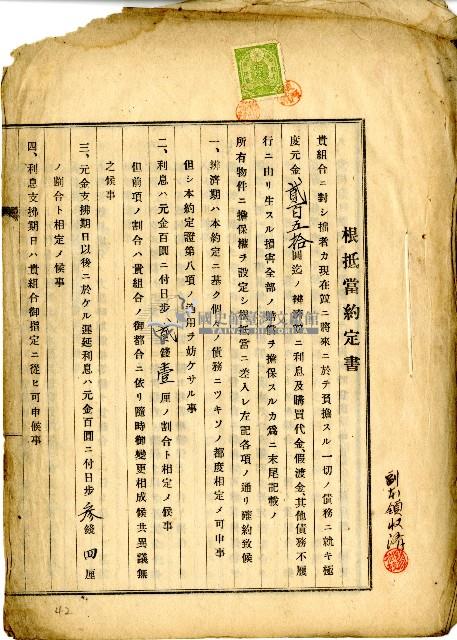 根抵當約定書
貴組合ニ對シ拙者カ現在竝ニ將來ニ於テ負擔スル一切ノ債務ニ就キ極
度元金貳百五拾圓迄ノ辨濟竝ニ利息及購買代金、假渡金、其他債務不履
行ニ由リ生スル損害全部ノ賠償ヲ擔保スルカ爲ニ末尾記載ノ
所有物件ニ擔保權ヲ設定シ根抵當ニ差入レ左記各項ノ通リ確約致候
一、辨濟期ハ本約定ニ基ク個々ノ債務ニツキソノ都度相定メ可申事
但シ本約定證第八項ノ適用ヲ妨ケサル事
二、利息ハ元金百圓ニ付日歩貳錢壹厘ノ割合ト相定メ候事
但前項ノ割合ハ貴組合ノ御都合ニ依リ隨時御變更相成候共異議無
之候事
三、元金支拂期日以後ニ於ケル遲延利息ハ元金百圓ニ付日歩參錢四厘
ノ割合ト相定メ候事
四、利息支拂期日ハ貴組合御指定ニ從ヒ可申候事
副本領收濟
國史館臺灣文獻館
42